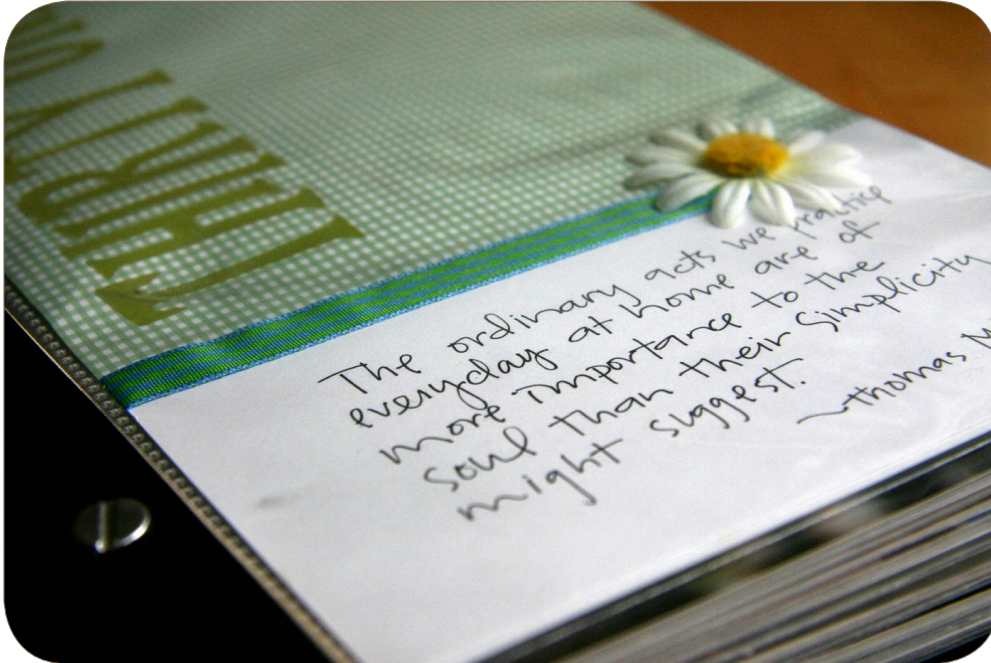 The ordinary acts we practice
everyday at home are of
more importance to the
soul than their simplicity
might suggest.
~thomas M